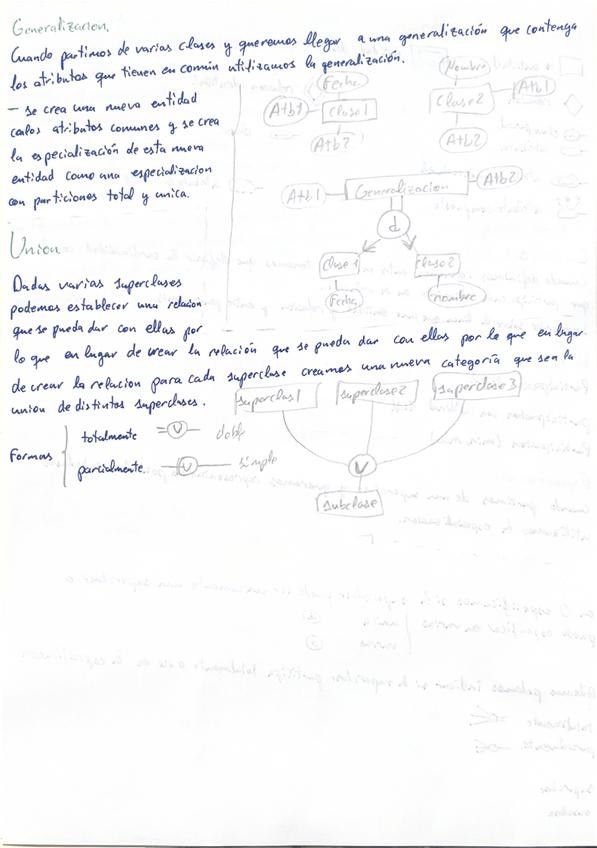 Generalizacion.
Cuando partimos de varias clases y queremos llegar a una generalización que contenga
los atributos que tienen en común utilizamos la generalización.
- se crea una nueva entidad
con los atributos comunes y se crea
la especialización de esta nueva
entidad como una especializacion
con particiones total y unica.
Fecha
Atb1
Clase1
Atb2
Nombre
Atb1
Clase2
Atb2
Atb1
Generalizacion
Atb2
d
Clase 1
Clase2
Fecha
nombre
Union
Dadas varias superclases
podemos establecer una relacion
que se pueda dar con ellas por
lo que en lugar de crear la relación que se pueda dar con ellas por lo que en lugar
de crear la relacion para cada superclase creamos una nueva categoría que sea la
union de distintas superclases.
Formas
totalmente
U
doble
parcialmente
U
simple
superclas1
superclase2
superclase3
U
subclase